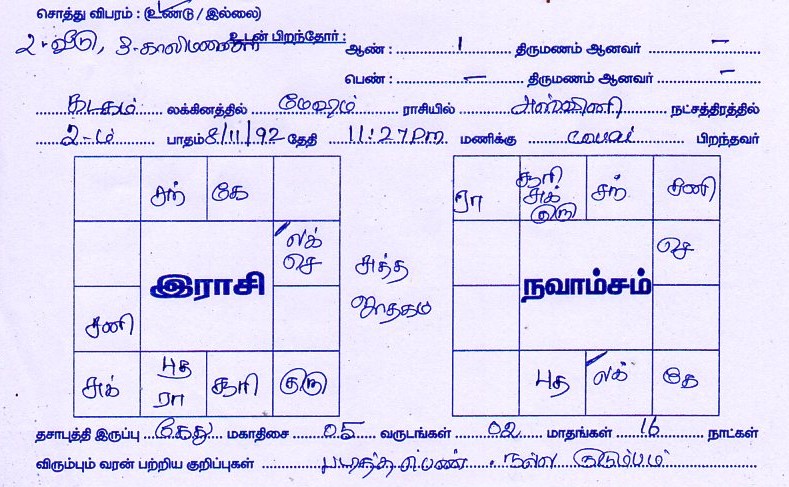 சொத்து விபரம் : (உண்டு / இல்லை)
2-வீடு, 3-காலிமனை உடன் பிறந்தோர் : ஆண் : 1 திருமணம் ஆனவர் –
பெண் : – திருமணம் ஆனவர் –
கடகம் லக்கினத்தில் மேஷம் ராசியில் அஸ்வினி நட்சத்திரத்தில்
2-ம் பாதம் 8/11/92 தேதி 11:27 Pm மணிக்கு கோவை பிறந்தவர்
சந் கே
லக்
செ
இராசி
சனி
சுக் புத
ரா சூரி குரு
சுத்த
ஜாதகம்
ரா சூரி
சுக்
குரு சந் சனி
செ
நவாம்சம்
புத லக் கே
தசாபுத்தி இருப்பு கேது மகாதிசை 05 வருடங்கள் 02 மாதங்கள் 16 நாட்கள்
விரும்பும் வரன் பற்றிய குறிப்புகள் படித்த பெண். நல்ல குடும்பம்